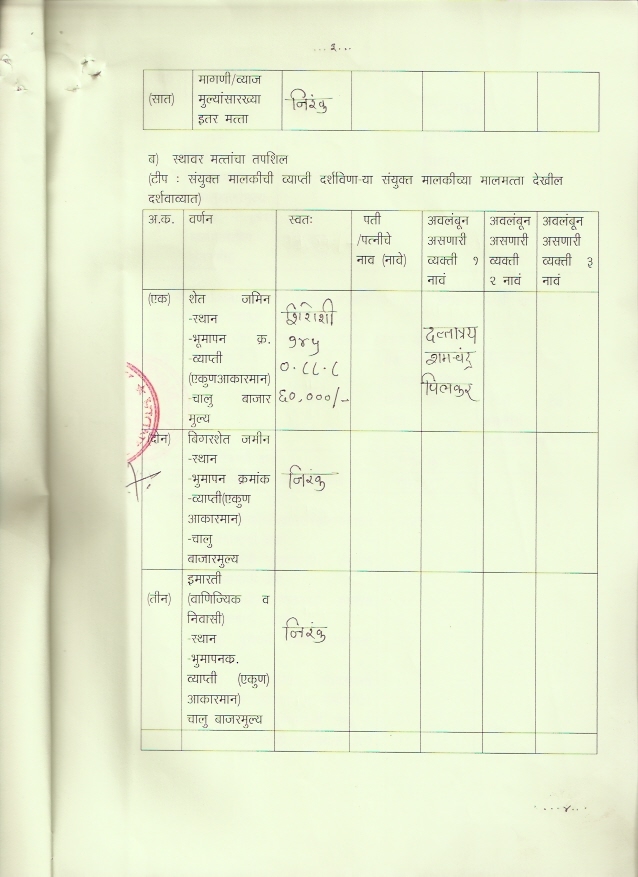 ...३...
मागणी/व्याज
(सात) मुल्यांसारख्या निरंक
इतर मत्ता
ब) स्थावर मत्तांचा तपशिल
(टीप : संयुक्त मालकीची व्याप्ती दर्शविणा-या संयुक्त मालकीच्या मालमत्ता देखील
दर्शवाव्यात)
अ.क. वर्णन स्वतः पती अवलंबून अवलंबून अवलंबून
/पत्नीचे असणारी असणारी असणारी
नाव (नावे) व्यक्ती १ व्यक्ती व्यक्ती ३
नावं २ नावं नावं
(एक) शेत जमिन
-स्थान शिरोशी दत्तात्रय
-भूमापन क्र. १४५ रामचंद्र
-व्याप्ती ०.८८.८
(एकुणआकारमान) पिलकर
-चालु बाजार ६०,०००/-
मुल्य
(दोन) बिगरशेत जमीन
-स्थान
-भुमापन क्रमांक निरंक
-व्याप्ती(एकुण
आकारमान)
-चालु
बाजारमुल्य
इमारती
(तीन) (वाणिज्यिक व
निवासी)
-स्थान निरंक
-भुमापनक.
व्याप्ती (एकुण)
आकारमान)
चालु बाजरमुल्य
....४...